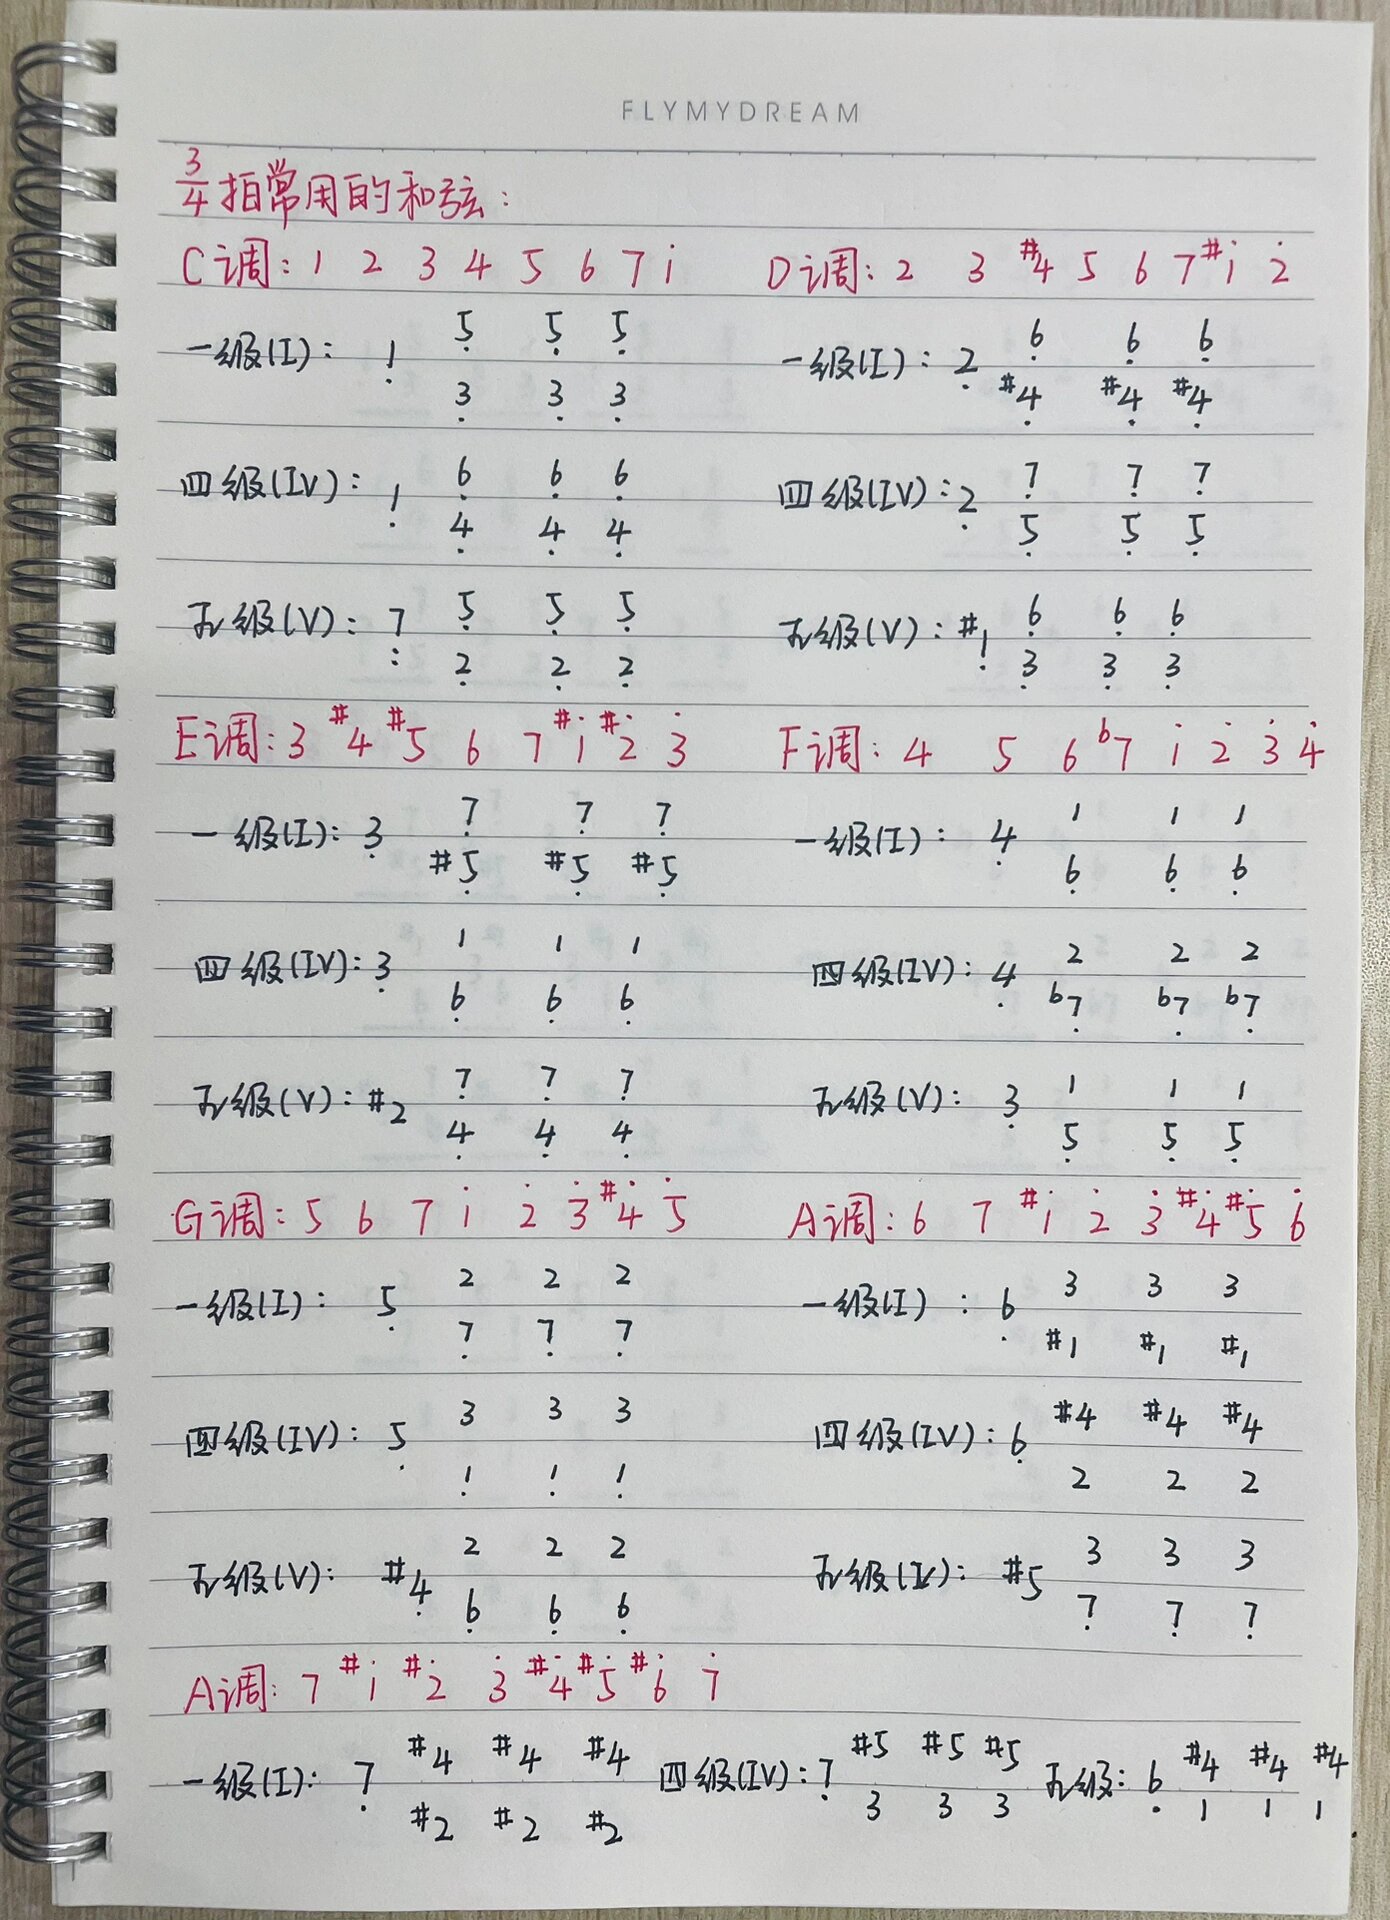 FLYMYDREAM
3/4拍常用的和弦：
C调：1 2 3 4 5 6 7 i̇
D调：2 3 #4 5 6 7 #i̇ 2̇
一级(I)：1̣ 5̣ 5̣ 5̣
3̣ 3̣ 3̣
一级(I)：2̣ 6̣ 6̣ 6̣
#4̣ #4̣ #4̣
四级(IV)：1̣ 6̣ 6̣ 6̣
4̣ 4̣ 4̣
四级(IV)：2̣ 7̣ 7̣ 7̣
5̣ 5̣ 5̣
五级(V)：7̣̣ 5̣ 5̣ 5̣
2̣ 2̣ 2̣
五级(V)：#1̣ 6̣ 6̣ 6̣
3̣ 3̣ 3̣
E调：3 #4 #5 6 7 #i̇ #2̇ 3̇
F调：4 5 6 b7 i̇ 2̇ 3̇ 4̇
一级(I)：3̣ 7̣ 7̣ 7̣
#5̣ #5̣ #5̣
一级(I)：4̣ 1 1 1
6̣ 6̣ 6̣
四级(IV)：3̣ 1 1 1
6̣ 6̣ 6̣
四级(IV)：4̣ 2 2 2
b7̣ b7̣ b7̣
五级(V)：#2 7̣ 7̣ 7̣
4̣ 4̣ 4̣
五级(V)：3̣ 1 1 1
5̣ 5̣ 5̣
G调：5 6 7 i̇ 2̇ 3̇ #4̇ 5̇
A调：6 7 #i̇ 2̇ 3̇ #4̇ #5̇ 6̇
一级(I)：5̣ 2 2 2
7̣ 7̣ 7̣
一级(I)：6̣ 3 3 3
#1 #1 #1
四级(IV)：5̣ 3 3 3
1̣ 1̣ 1̣
四级(IV)：6̣ #4 #4 #4
2 2 2
五级(V)：#4̣ 2 2 2
6̣ 6̣ 6̣
五级(IV)：#5 3 3 3
7̣ 7̣ 7̣
A调：7 #i̇ #2̇ 3̇ #4̇ #5̇ #6̇ 7̇
一级(I)：7̣ #4 #4 #4
#2 #2 #2
四级(IV)：7̣ #5 #5 #5
3 3 3
五级：6̣ #4 #4 #4
1 1 1